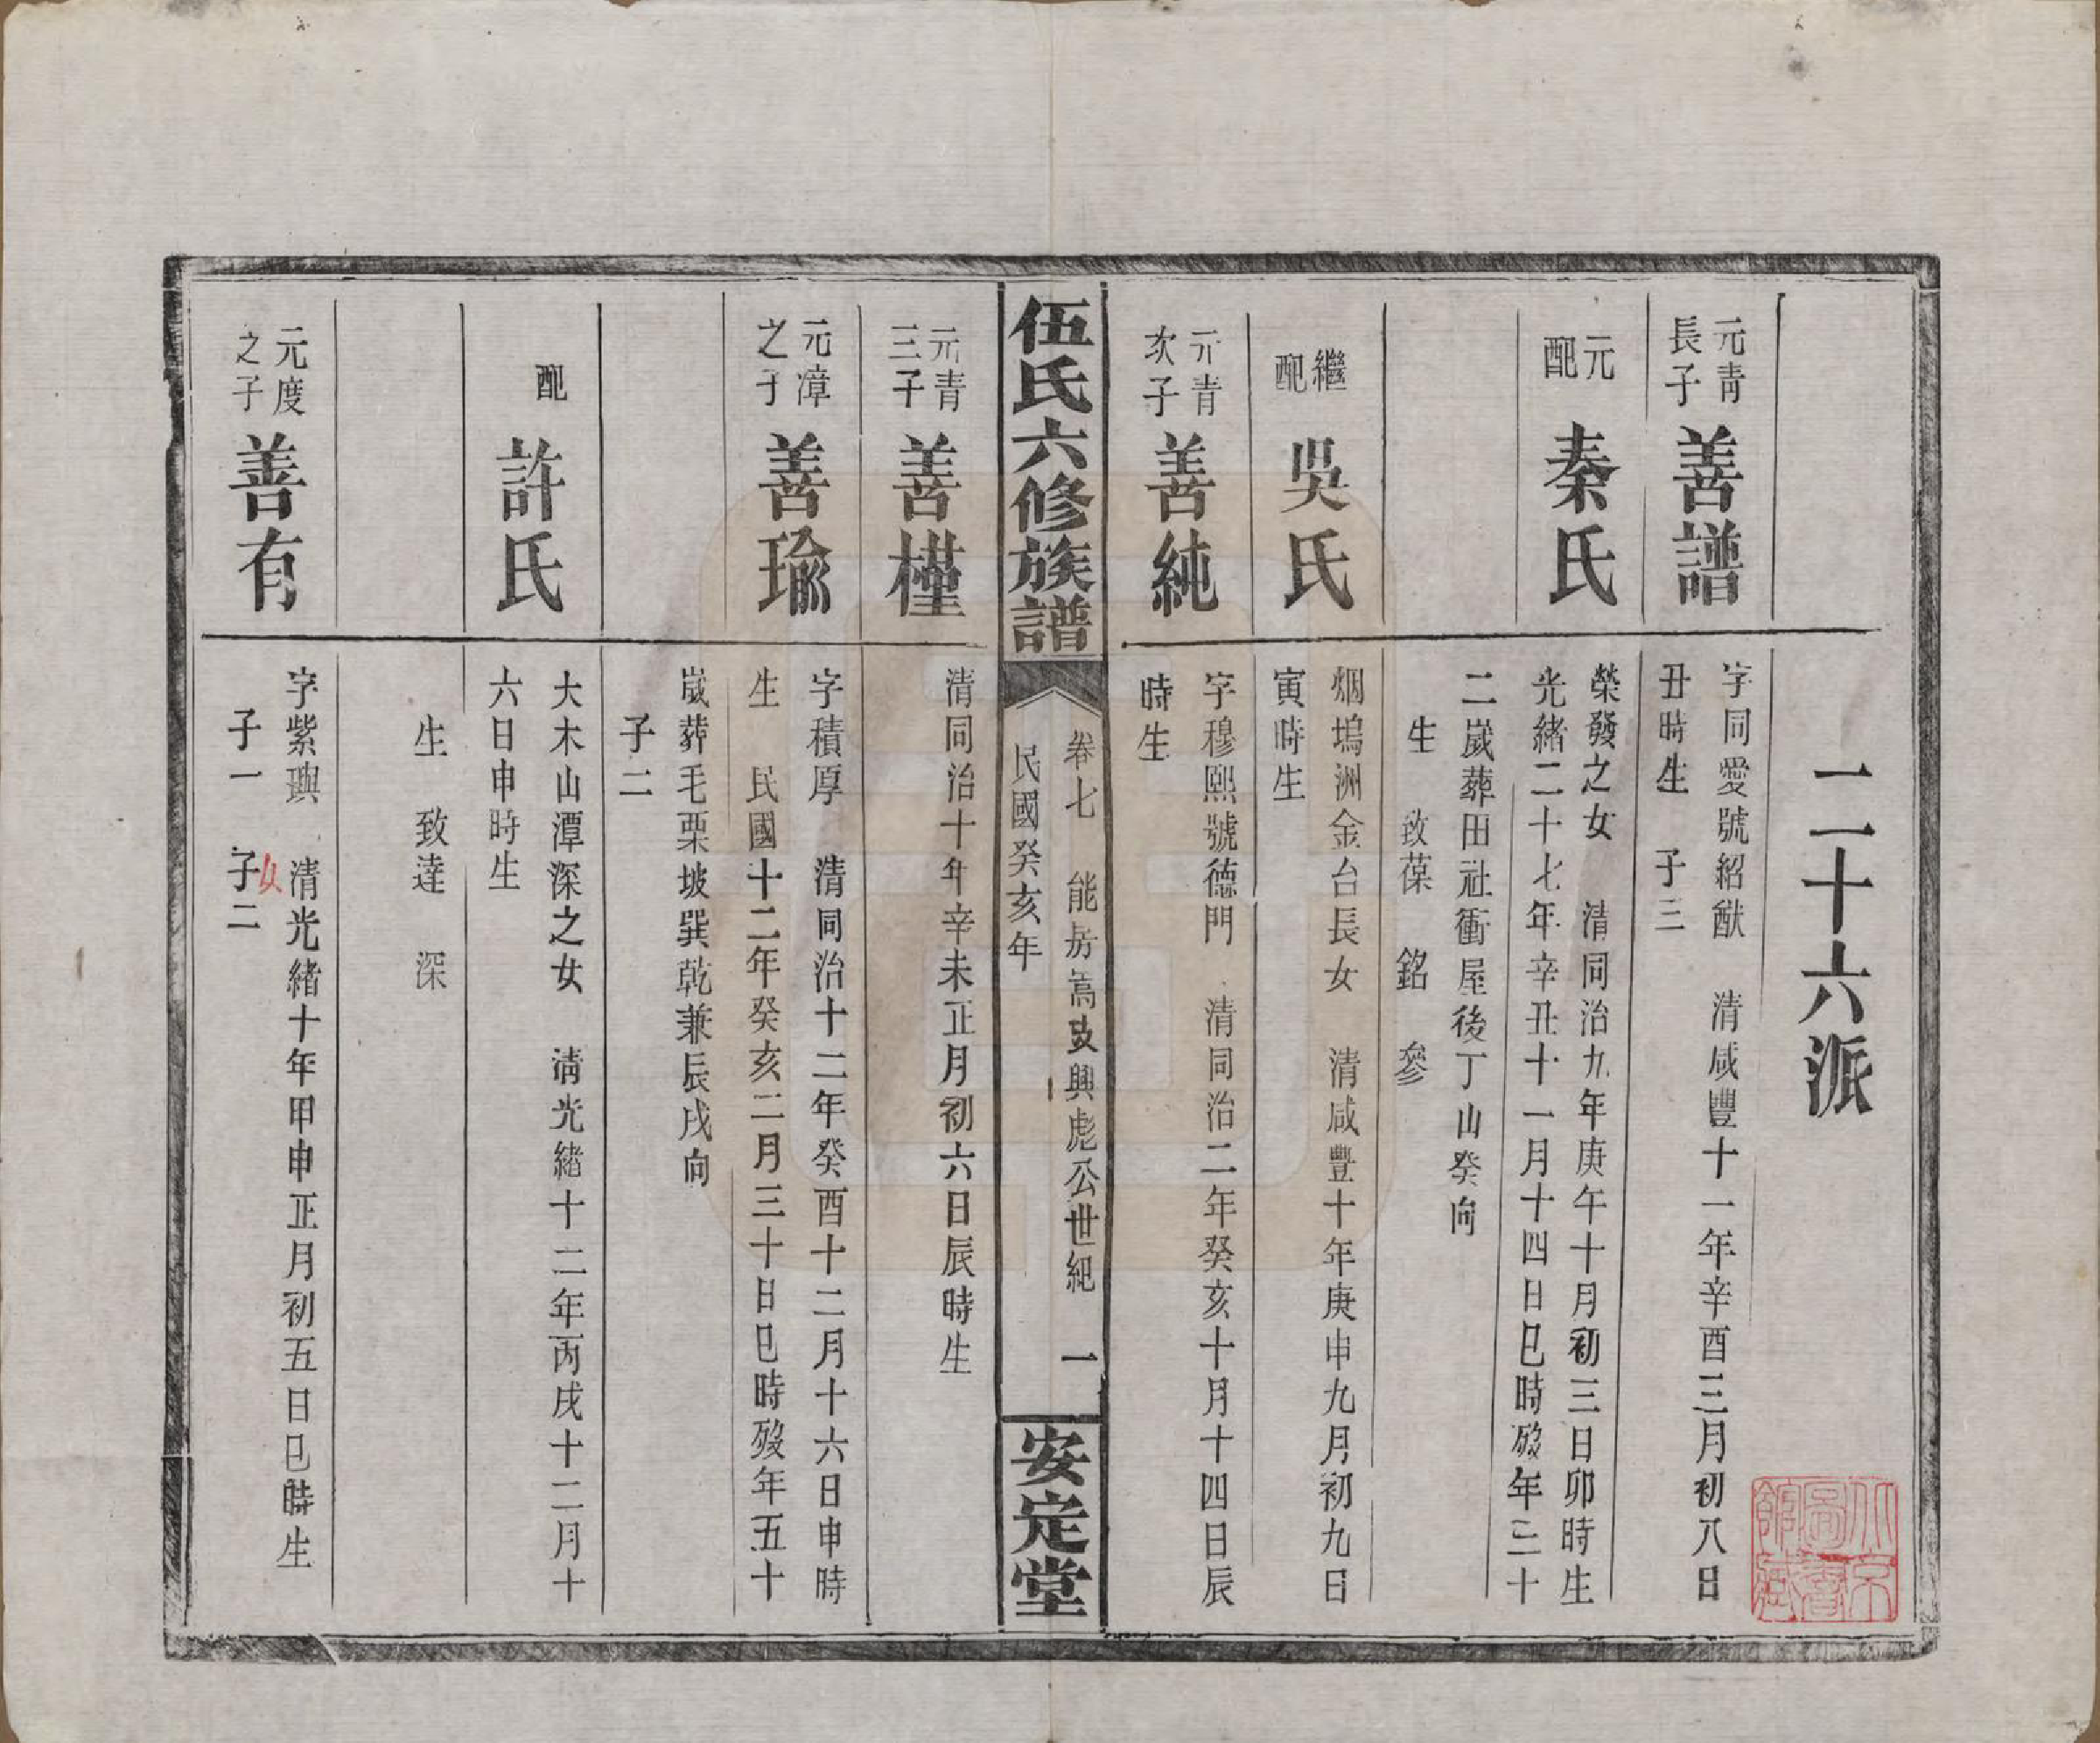 二十六派
元青
長子
善譜
字同愛號紹猷　清咸豐十一年辛酉三月初八日
丑時生　子三
元
配
秦氏
榮發之女　清同治九年庚午十月初三日卯時生
光緒二十七年辛丑十一月十四日巳時歿年三十
二嵗葬田社衝屋後丁山癸向
生　致葆　銘　參
繼
配
吳氏
烟塢洲金台長女　清咸豐十年庚申九月初九日
寅時生
元青
次子
善純
字穆熙號德門　清同治二年癸亥十月十四日辰
時生
伍氏六修族譜
卷七　能房嵩攻興彪公世紀　一
民國癸亥年
安定堂
元青
三子
善槿
清同治十年辛未正月初六日辰時生
元漳
之子
善瑜
字積厚　清同治十二年癸酉十二月十六日申時
生　民國十二年癸亥二月三十日巳時歿年五十
嵗葬毛栗坡巽乾兼辰戌向
子二
配
許氏
大木山潭深之女　清光緒十二年丙戌十二月十
六日申時生
生　致達　深
元度
之子
善有
字紫璵　清光緒十年甲申正月初五日巳時生
子一　子二
女
北京
圖書
館藏